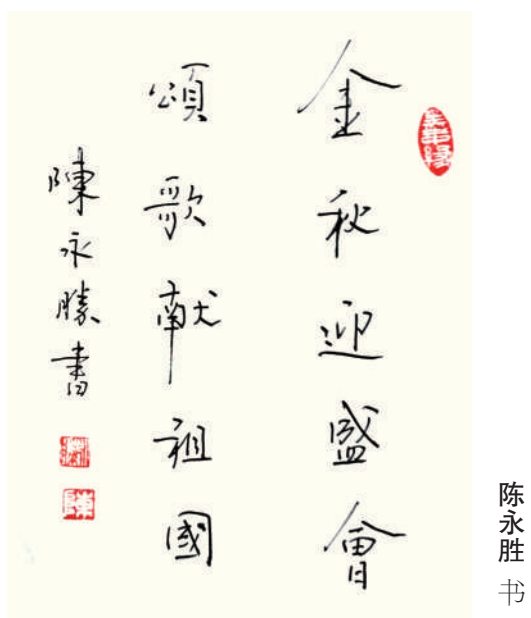 金秋迎盛會
頌歌献祖國
陳永勝書
陈永胜 书